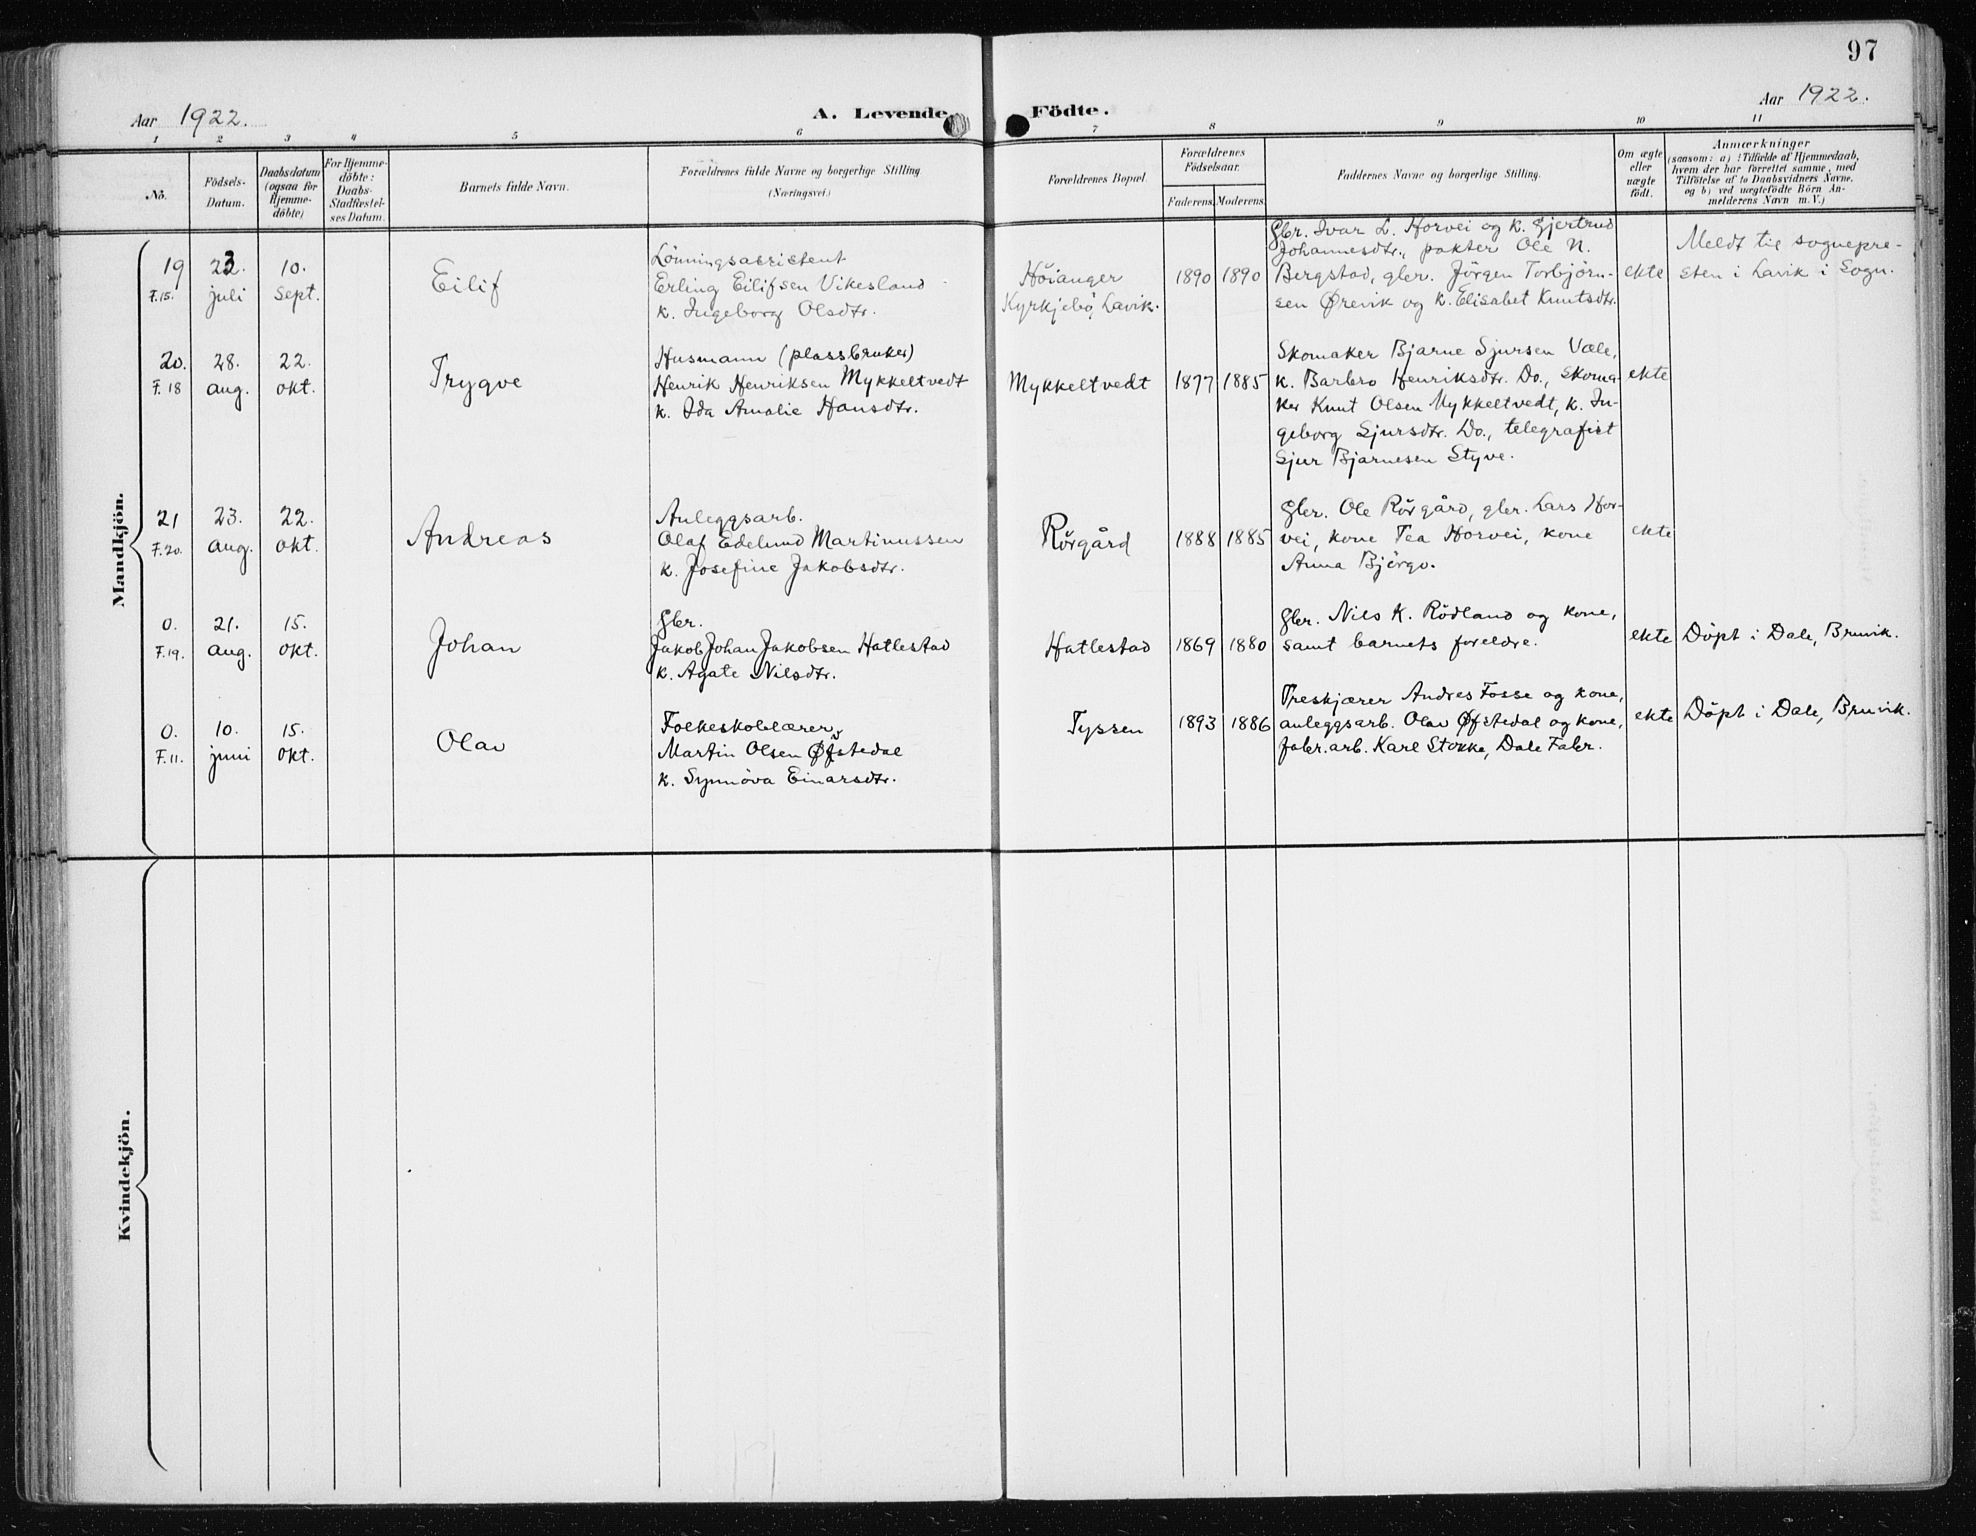 97
Aar 1922.
A. Levende Födte.
Aar 1922.
1 2 3 4 5 6 7 8 9 10 11
No.
Födsels-
Datum.
Daabsdatum
(ogsaa for
Hjemme-
döbte)
For Hjemme-
döbte:
Daabs-
Stadfæstel-
ses Datum.
Barnets fulde Navn.
Forældrenes fulde Navne og borgerlige Stilling
(Næringsvei.)
Forældrenes Bopæl.
Forældrenes
Födselsaar.
Faderens. Moderens.
Faddernes Navne og borgerlige Stilling.
Om ægte
eller
uægte
födt.
Anmærkninger
(saasom: a) i Tilfælde af Hjemmedaab,
hvem der har forrettet samme, med
Tilföielse af to Daabsvidners Navne,
og b) ved uægtefödte Börn An-
melderens Navn m. V.)
Mandkjön.
19
F.15.
23.
juli
10.
Sept.
Eilif
Lönningsassistent
Erling Eilifsen Vikesland
k. Ingeborg Olsdtr.
Höianger
Kyrkjebö, Lavik.
1890 1890
Gbr. Ivar L. Horvei og k. Gjertrud
Johannesdtr., pakter Ole N.
Bergstad, gbr. Jörgen Torbjörn-
sen Ørevik og k. Elisabet Knutsdtr.
ekte
Meldt til sognepre-
sten i Lavik i Sogn.
20.
F.18
28.
aug.
22.
okt.
Trygve
Husmann (plassbruker)
Henrik Henriksen Mykkeltvedt
k. Ida Amalie Hansdtr.
Mykkeltvedt
1877 1885
Skomaker Bjarne Sjursen Væle,
k. Barbro Henriksdtr. Do., skoma-
ker Knut Olsen Mykkeltvedt, k. In-
geborg Sjursdtr. Do., telegrafist
Sjur Bjarnesen Styve.
ekte
21
F.20.
23.
aug.
22.
okt.
Andreas
Anleggsarb.
Olaf Edelund Martinussen
k. Josefine Jakobsdtr.
Rörgård
1888 1885
Gbr. Ole Rörgård, gbr. Lars Hor-
vei, kone Tea Horvei, kone
Anna Björgo.
ekte
0.
F.19.
21.
aug.
15.
okt.
Johan
Gbr.
Jakob Johan Jakobsen Hatlestad
k. Agate Nilsdtr.
Hatlestad
1869 1880
Gbr. Nils K. Rödland og kone,
samt barnets foreldre.
ekte
Döpt i Dale, Bruvik.
0.
F.11.
10.
juni
15.
okt.
Olav
Folkeskolelærer
Martin Olsen Øfstedal
k. Synnöva Einarsdtr.
Tyssen
1893 1886
Treskjærer Andres Fosse og kone,
anleggsarb. Olav Øfstedal og kone,
fabr.arb. Karl Stokke, Dale Fabr.
ekte
Döpt i Dale, Bruvik.
Kvindekjön.